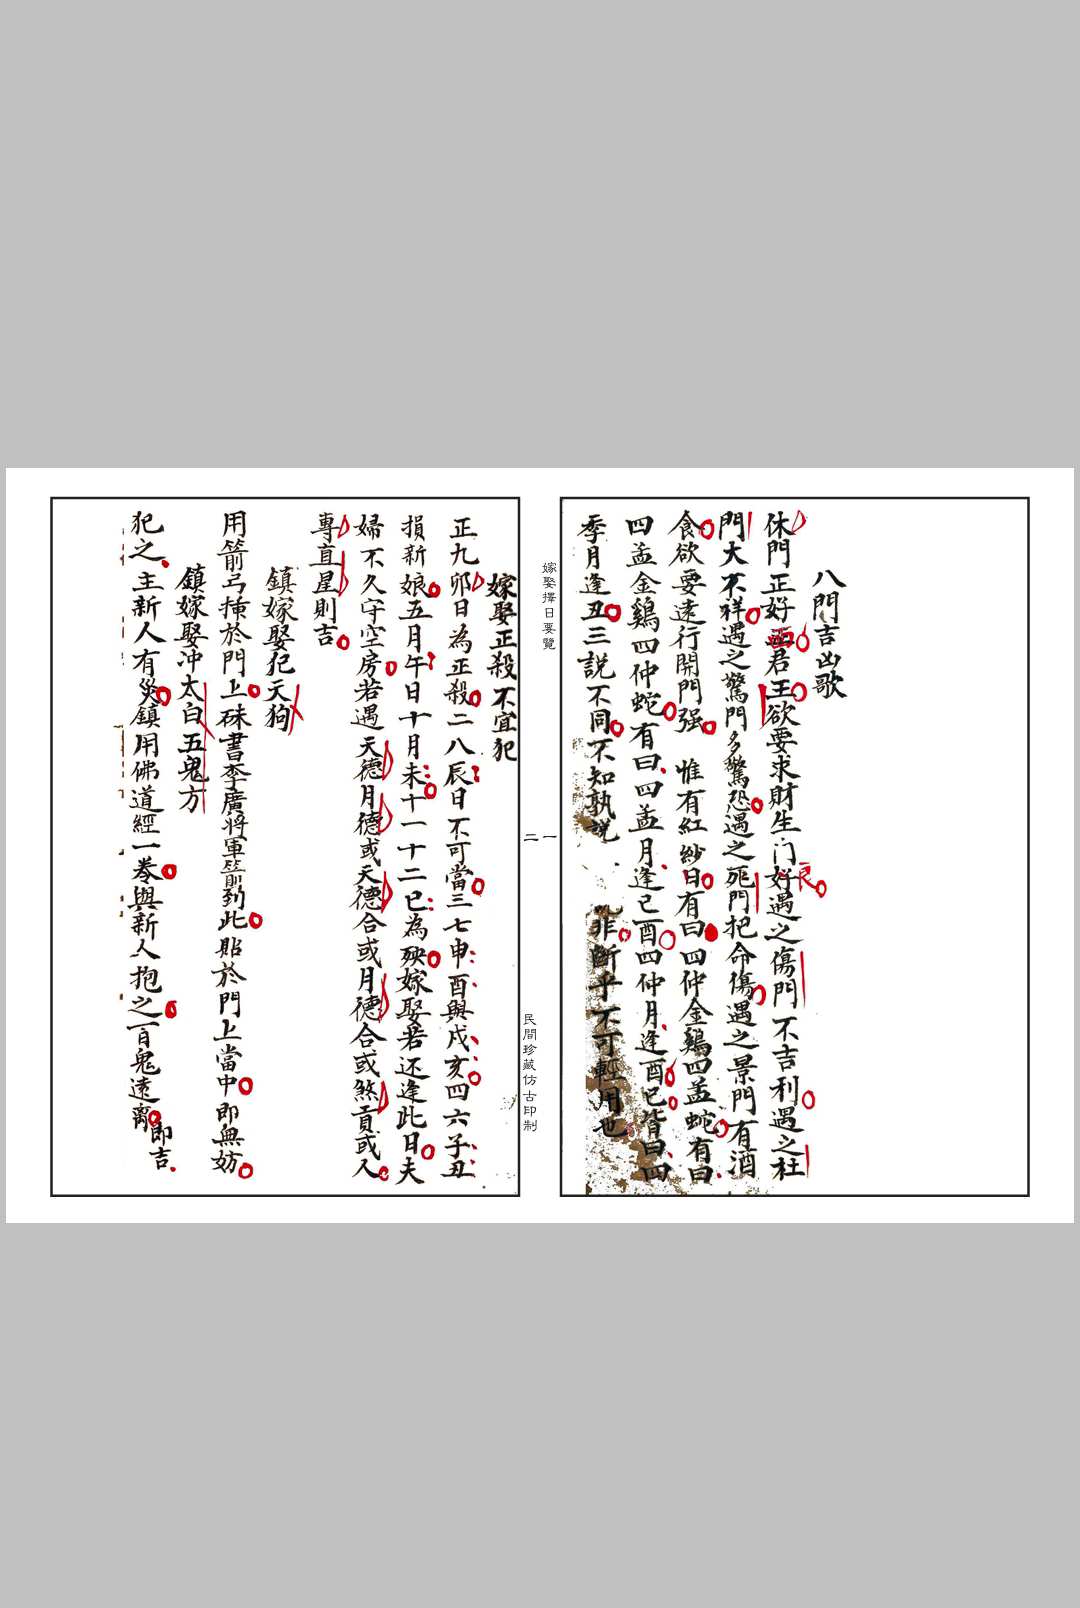 八門吉凶歌
休門正好面君王欲要求財生门好遇之傷門不吉利遇之杜
門大不祥遇之驚門多驚恐遇之死門把命傷遇之景門有酒
食欲要遠行開門强 惟有紅紗日有曰四仲金鷄四孟蛇有曰
四孟金鷄四仲蛇有曰四孟月逢已酉四仲月逢酉已皆曰四
季月逢丑三説不同不知孰説 非斷乎不可輕用也
嫁娶擇日要覽
一
二
民間珍藏仿古印制
嫁娶正殺不宜犯
正九卯日為正殺二八辰日不可當三七申酉與戌亥四六子丑
損新娘五月午日十月未十一十二已為殃嫁娶若还逢此日夫
婦不久守空房若遇天德月德或天德合或月德合或煞貢或人
專直星則吉
鎮嫁娶犯天狗
用箭弓掛於門上硃書李廣將軍箭到此貼於門上當中即無妨
鎮嫁娶冲太白五鬼方
犯之主新人有災鎮用佛道經一卷與新人抱之百鬼遠离即吉